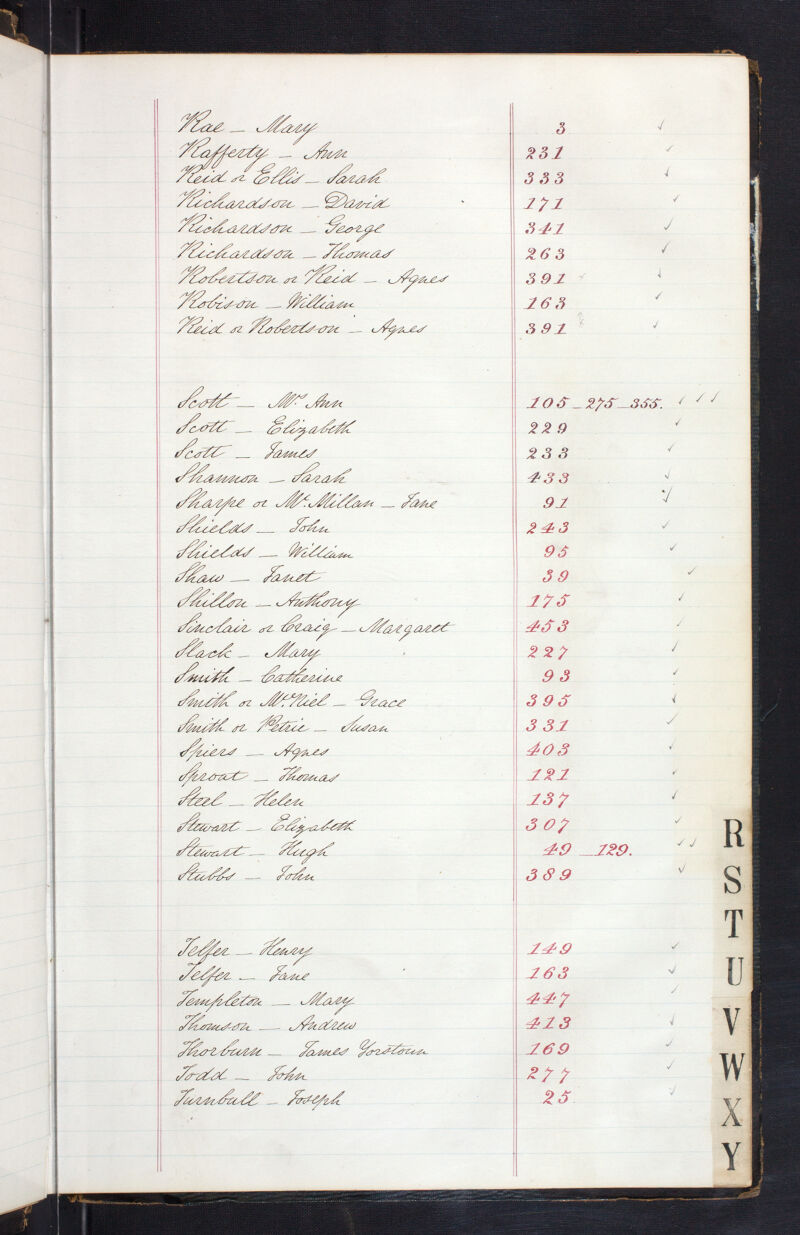 Rae – Mary 3 ✓
Rafferty – Ann 231 ✓
Reid or Ellis – Sarah 333 ✓
Richardson – David 171 ✓
Richardson – George 341 ✓
Richardson – Thomas 263 ✓
Robertson or Reid – Agnes 391 ✓
Robison – William 163 ✓
Reid or Robertson – Agnes 391 ✓
Scott – Mrs Ann 105 – 275 – 355. ✓ ✓ ✓
Scott – Elizabeth 229 ✓
Scott – James 233 ✓
Shannon – Sarah 433 ✓
Sharpe or Mc.Millan – Jane 91 ✓
Shields – John 243 ✓
Shields – William 95 ✓
Shaw – Janet 39 ✓
Shillon – Anthony 175 ✓
Sinclair or Craig – Margaret 453 ✓
Slack – Mary 227 ✓
Smith – Catherine 93 ✓
Smith or Mc.Niel – Grace 395 ✓
Smith or Petrie – Susan 331 ✓
Spiers – Agnes 403 ✓
Sproat – Thomas 121 ✓
Steel – Helen 137 ✓
Stewart – Elizabeth 307 ✓
Stewart – Hugh 49 – 129. ✓ ✓
Stubbs – John 389 ✓
Telfer – Henry 149 ✓
Telfer – Jane 163 ✓
Templeton – Mary 447 ✓
Thomson – Andrew 413 ✓
Thorburn – James Yorstoun 169 ✓
Todd – John 277 ✓
Turnbull – Joseph 25 ✓
R
S
T
U
V
W
X
Y